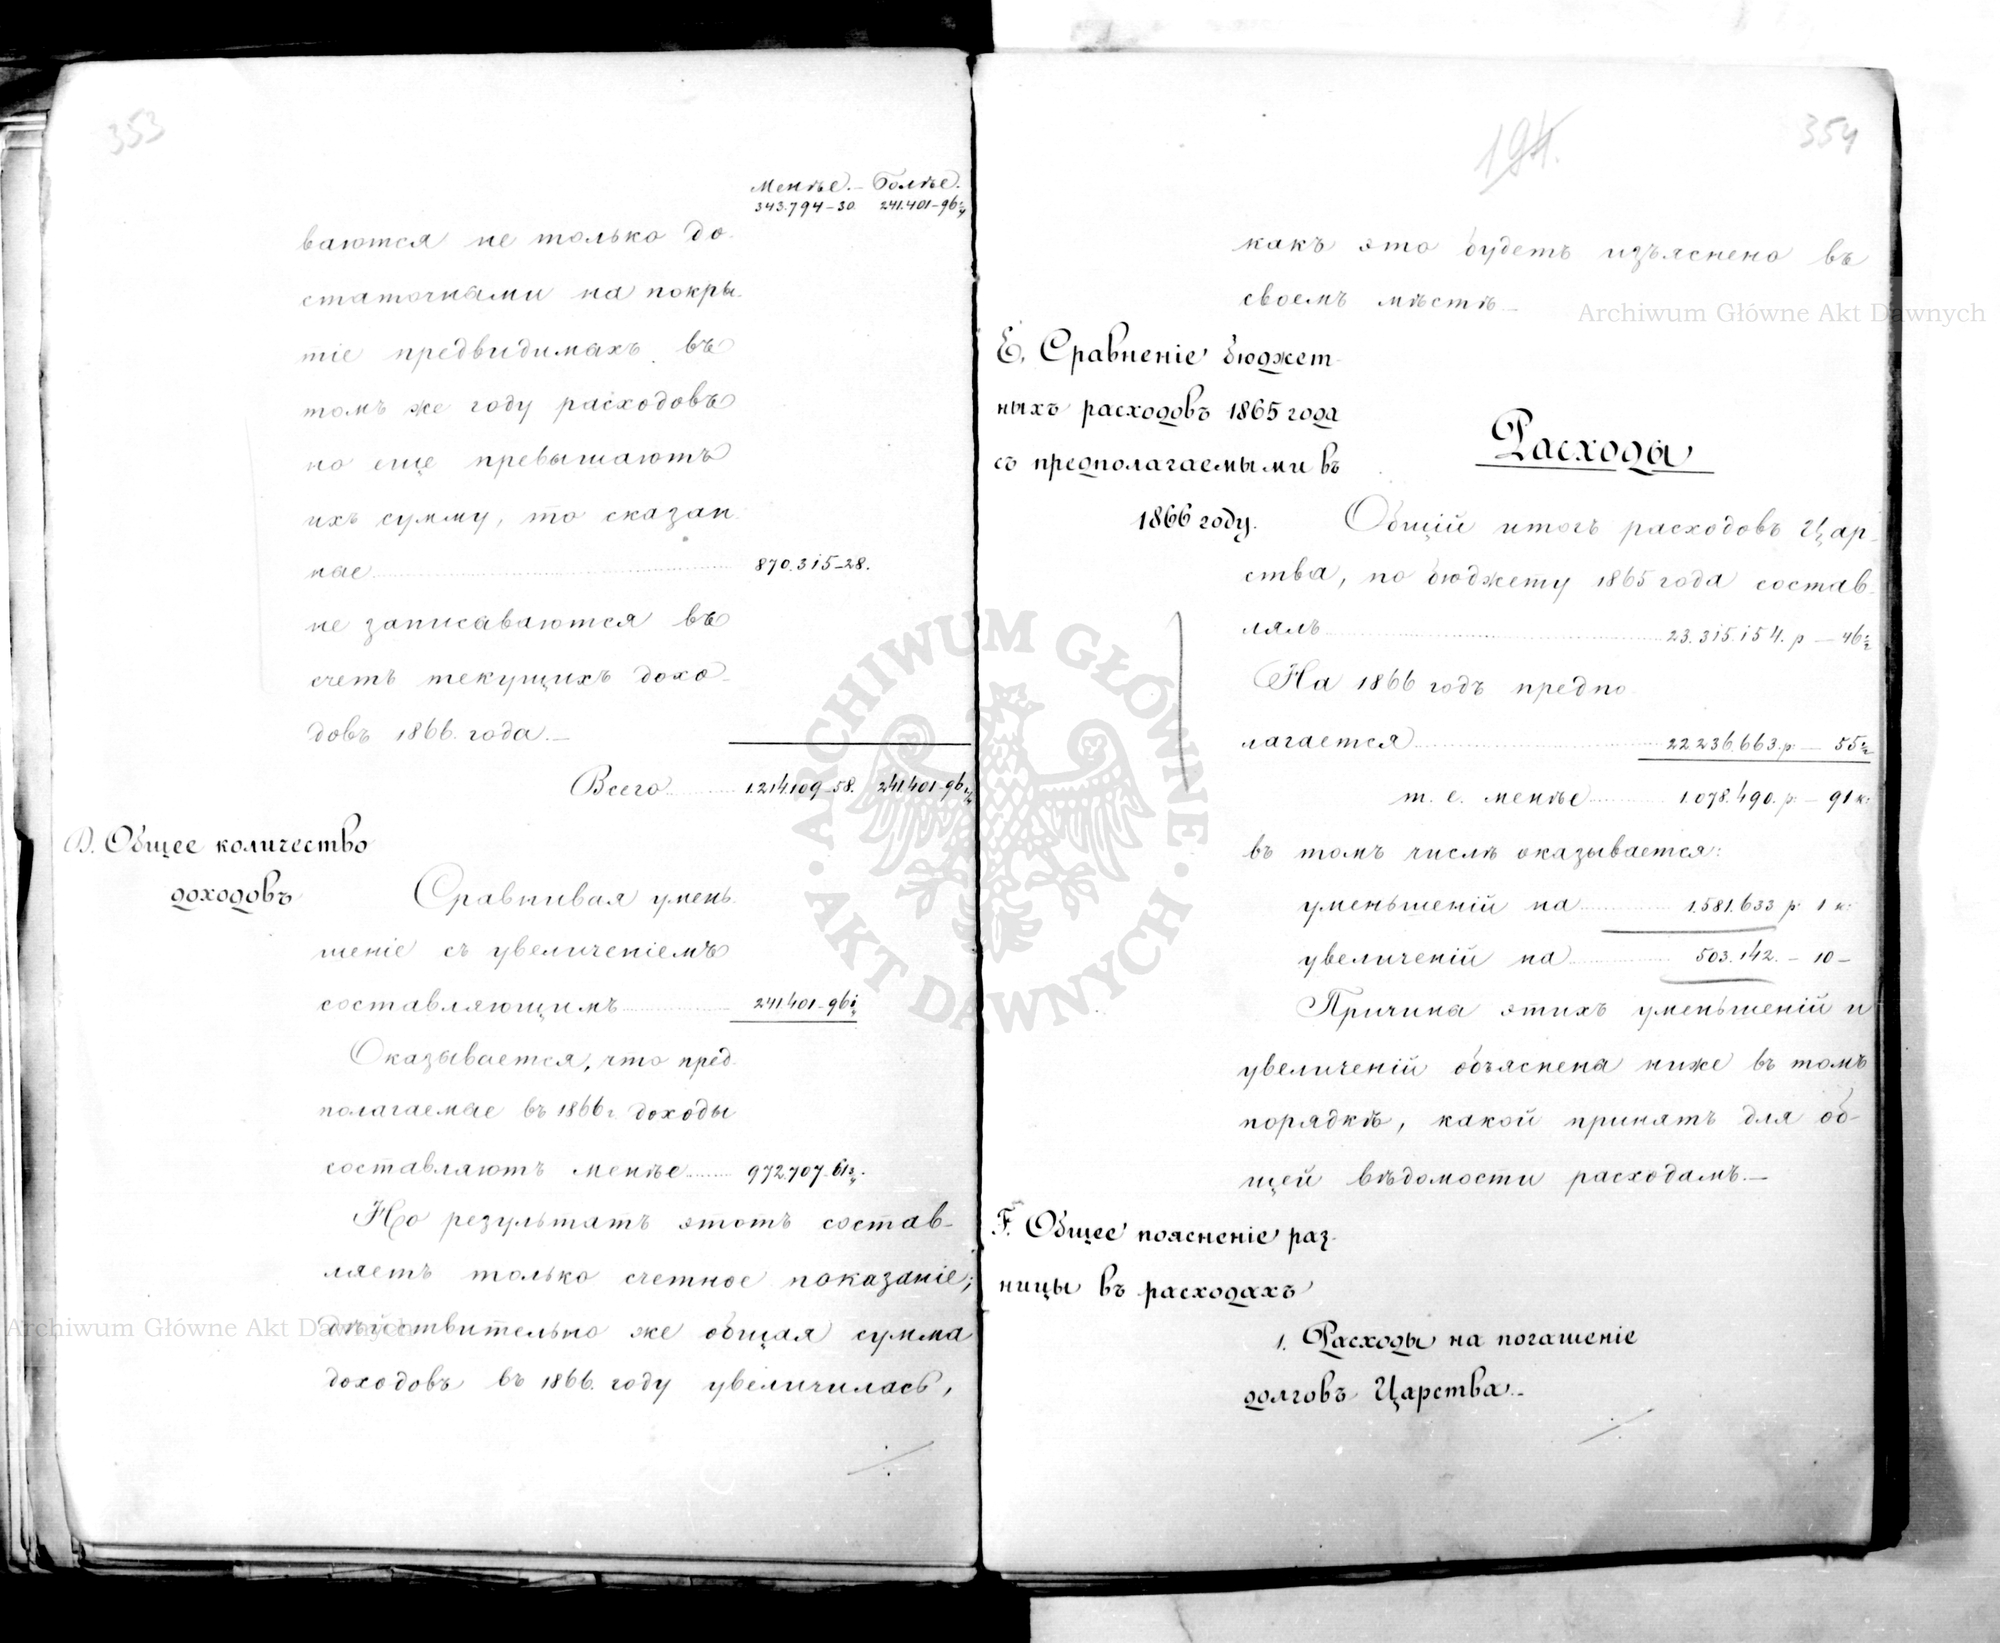 353
Менѣе. — Болѣе.
343.794–30. 241.401–96¼
ваются не только до-
статочными на покры-
тіе предвидимыхъ въ
томъ же году расходовъ
но еще превышаютъ
ихъ сумму, то сказан-
ные 870.315–28.
не записываются въ
счетъ текущихъ дохо-
довъ 1866. года.—
Всего 1.214.109–58. 241.401–96¼
D. Общее количество
доходовъ
Сравнивая умень-
шеніе съ увеличеніемъ
составляющимъ 241.401–96¼
Оказывается, что пред-
полагаемые въ 1866 г. доходы
составляютъ менѣе 972.707–61¾.
Но результатъ этотъ состав-
ляетъ только счетное показаніе;
дѣйствительно же общая сумма
доходовъ въ 1866. году увеличилась,
194.
354
какъ это будетъ изъяснено въ
своемъ мѣстѣ.—
E. Сравненіе бюджет-
ныхъ расходовъ 1865 года
съ предполагаемыми въ
1866 году.
Расходы
Общій итогъ расходовъ Цар-
ства, по бюджету 1865 года состав-
лялъ 23.315.154. р — 46½
На 1866 годъ предпо-
лагается 22.236.663. р: — 55½
т. е. менѣе 1.078.490. р: — 91 к:
въ томъ числѣ оказывается:
уменьшеній на 1.581.633 р: 1 к:
увеличеній на 503.142. — 10 —
Причина этихъ уменьшеній и
увеличеній объяснена ниже въ томъ
порядкѣ, какой принятъ для об-
щей вѣдомости расходамъ.—
F. Общее поясненіе раз-
ницы въ расходахъ
1. Расходы на погашеніе
долговъ Царства.—
Archiwum Główne Akt Dawnych
Archiwum Główne Akt Dawnych
ARCHIWUM GŁÓWNE · AKT DAWNYCH ·